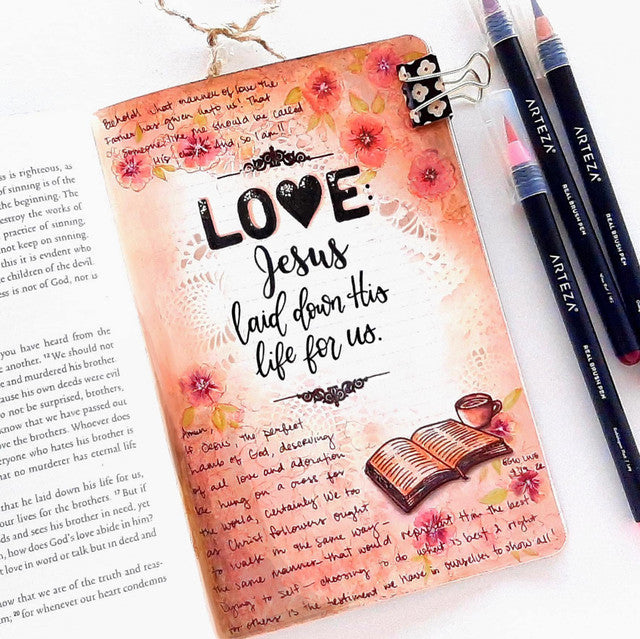 is righteous, as
of sinning is of the
the beginning. The
destroy the works of
practice of sinning.
not keep on sinning,
this it is evident who
e children of the devil.
ess is not of God, nor is
you have heard from the
e another. 12 We should not
e and murdered his brother.
cause his own deeds were evil
o not be surprised, brothers,
know that we have passed out
ve the brothers. Whoever does
eryone who hates his brother is
hat no murderer has eternal life
that he laid down his life for us,
our lives for the brothers. 17 But if
ds and sees his brother in need, yet
n, how does God's love abide in him?
t love in word or talk but in deed and
now that we are of the truth and reas-
n; 20 for whenever our heart condemns
Behold! What manner of love the
Father has given unto us! That
someone like me should be called
His And so I am!!
LOVE:
Jesus
laid down His
life for us.
Amen.
If Jesus, the perfect
Lamb of God, deserving
of all love and adoration
be hung on a cross for
the world, certainly we too
as Christ followers ought
to walk in the same way—
the same manner that would represent Him the best
Dying to self — choosing to do what is best & right
for others is the testiment we have in ourselves to show all!
ARTEZA
REAL BRUSH PEN
ARTEZA
REAL BRUSH PEN
ARTEZA
REAL BRUSH PEN